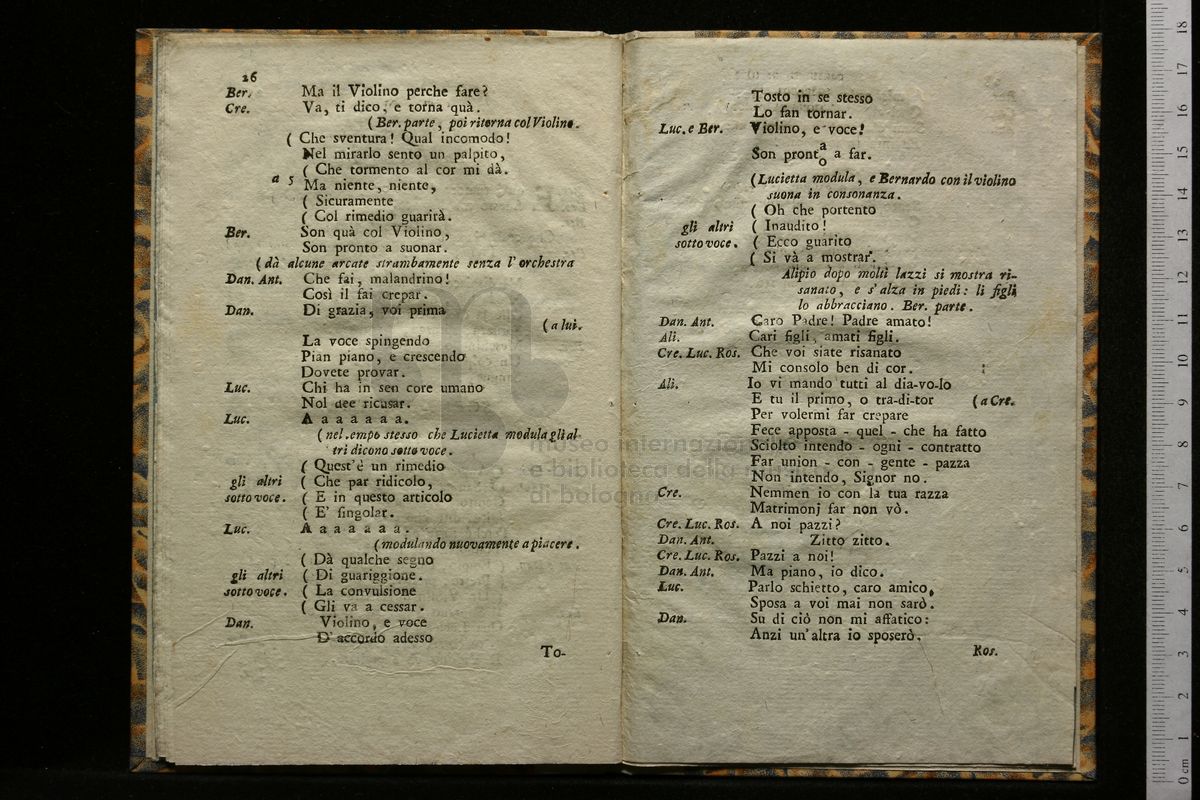 26
Ber. Ma il Violino perche fare?
Cre. Va, ti dico, e torna quà.
(Ber. parte, poi ritorna col Violino.
( Che sventura! Qual incomodo!
Nel mirarlo sento un palpito,
( Che tormento al cor mi dà.
a 5 Ma niente, niente,
( Sicuramente
( Col rimedio guarirà.
Ber. Son quà col Violino,
Son pronto a suonar.
(dà alcune arcate strambamente senza l'orchestra
Dan. Ant. Che fai, malandrino!
Così il fai crepar.
Dan. Di grazia, voi prima
(a lui.
La voce spingendo
Pian piano, e crescendo
Dovete provar.
Luc. Chi ha in sen core umano
Nol dee ricusar.
Luc. A a a a a a a.
(nel tempo stesso che Lucietta modula gli al
tri dicono sotto voce.
( Quest'è un rimedio
gli altri ( Che par ridicolo,
sotto voce. ( E in questo articolo
( E' singolar.
Luc. A a a a a a a.
(modulando nuovamente a piacere.
( Dà qualche segno
gli altri ( Di guariggione.
sotto voce. ( La convulsione
( Gli va a cessar.
Dan. Violino, e voce
D'accordo adesso
To-
Tosto in se stesso
Lo fan tornar.
Luc. e Ber. Violino, e voce!
Son pront a/o a far.
(Lucietta modula, e Bernardo con il violino
suona in consonanza.
( Oh che portento
gli altri ( Inaudito!
sotto voce. ( Ecco guarito
( Si và a mostrar.
Alipio dopo molti lazzi si mostra ri-
sanato, e s'alza in piedi: li figli
lo abbracciano. Ber. parte.
Dan. Ant. Caro Padre! Padre amato!
Ali. Cari figli, amati figli.
Cre. Luc. Ros. Che voi siate risanato
Mi consolo ben di cor.
Ali. Io vi mando tutti al dia-vo-lo
E tu il primo, o tra-di-tor (a Cre.
Per volermi far crepare
Fece apposta - quel - che ha fatto
Sciolto intendo - ogni - contratto
Far union - con - gente - pazza
Non intendo, Signor no.
Cre. Nemmen io con la tua razza
Matrimonj far non vò.
Cre. Luc. Ros. A noi pazzi?
Dan. Ant. Zitto zitto.
Cre. Luc. Ros. Pazzi a noi!
Dan. Ant. Ma piano, io dico.
Luc. Parlo schietto, caro amico,
Sposa a voi mai non sarò.
Dan. Su di ciò non mi affatico:
Anzi un'altra io sposerò.
Ros.
museo internazion
e biblioteca della
di bologna
0 cm 1 2 3 4 5 6 7 8 9 10 11 12 13 14 15 16 17 18